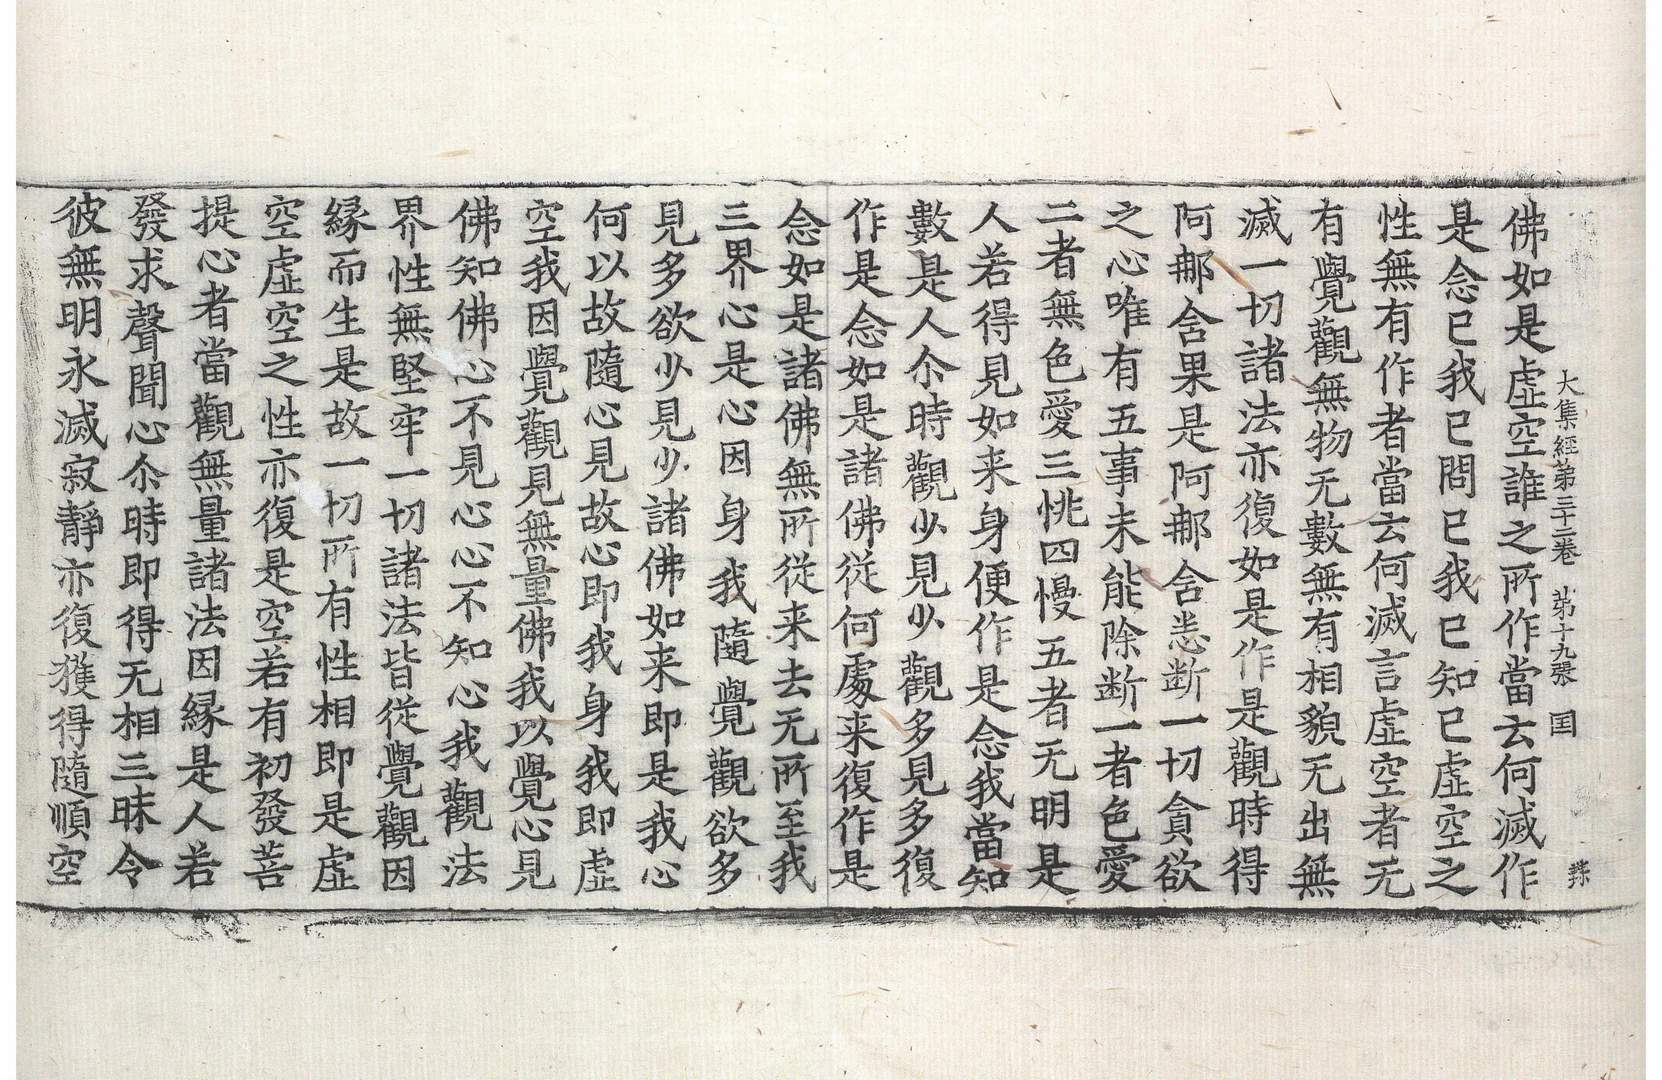 大集經第三十二卷 第十九張 国
佛如是虛空誰之所作當云何滅作
是念已我已問已我已知已虛空之
性無有作者當云何滅言虛空者无
有覺觀無物无數無有相貌无出無
滅一切諸法亦復如是作是觀時得
阿那含果是阿那含悉断一切貪欲
之心唯有五事未能除断一者色愛
二者無色愛三恌四慢五者无明是
人若得見如来身便作是念我當知
數是人尒時觀少見少觀多見多復
作是念如是諸佛從何處来復作是
念如是諸佛無所從来去无所至我
三界心是心因身我隨覺觀欲多
見多欲少見少諸佛如来即是我心
何以故隨心見故心即我身我即虛
空我因覺觀見無量佛我以覺心見
佛知佛心不見心心不知心我觀法
界性無堅牢一切諸法皆從覺觀因
縁而生是故一切所有性相即是虛
空虛空之性亦復是空若有初發菩
提心者當觀無量諸法因縁是人若
發求聲聞心尒時即得无相三昧令
彼無明永滅寂靜亦復獲得隨順空